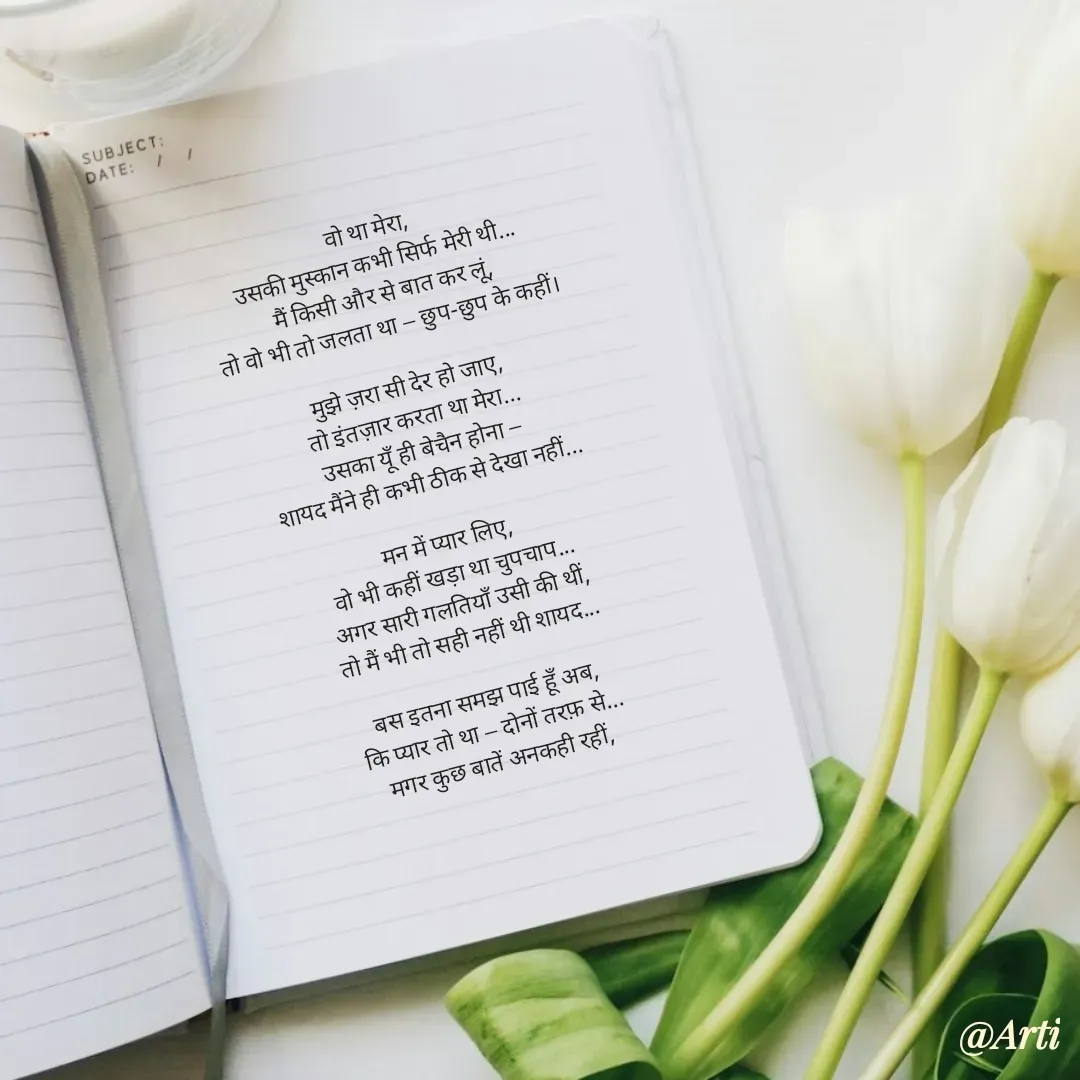 SUBJECT:
DATE: / /
वो था मेरा,
उसकी मुस्कान कभी सिर्फ मेरी थी...
मैं किसी और से बात कर लूं,
तो वो भी तो जलता था – छुप-छुप के कहीं।
मुझे ज़रा सी देर हो जाए,
तो इंतज़ार करता था मेरा...
उसका यूँ ही बेचैन होना –
शायद मैंने ही कभी ठीक से देखा नहीं...
मन में प्यार लिए,
वो भी कहीं खड़ा था चुपचाप...
अगर सारी गलतियाँ उसी की थीं,
तो मैं भी तो सही नहीं थी शायद...
बस इतना समझ पाई हूँ अब,
कि प्यार तो था – दोनों तरफ़ से...
मगर कुछ बातें अनकही रहीं,
@Arti